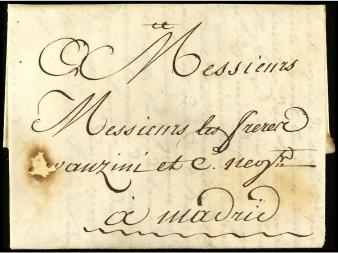 A Messieurs
Messieurs les freres
et C. negts
à madrid